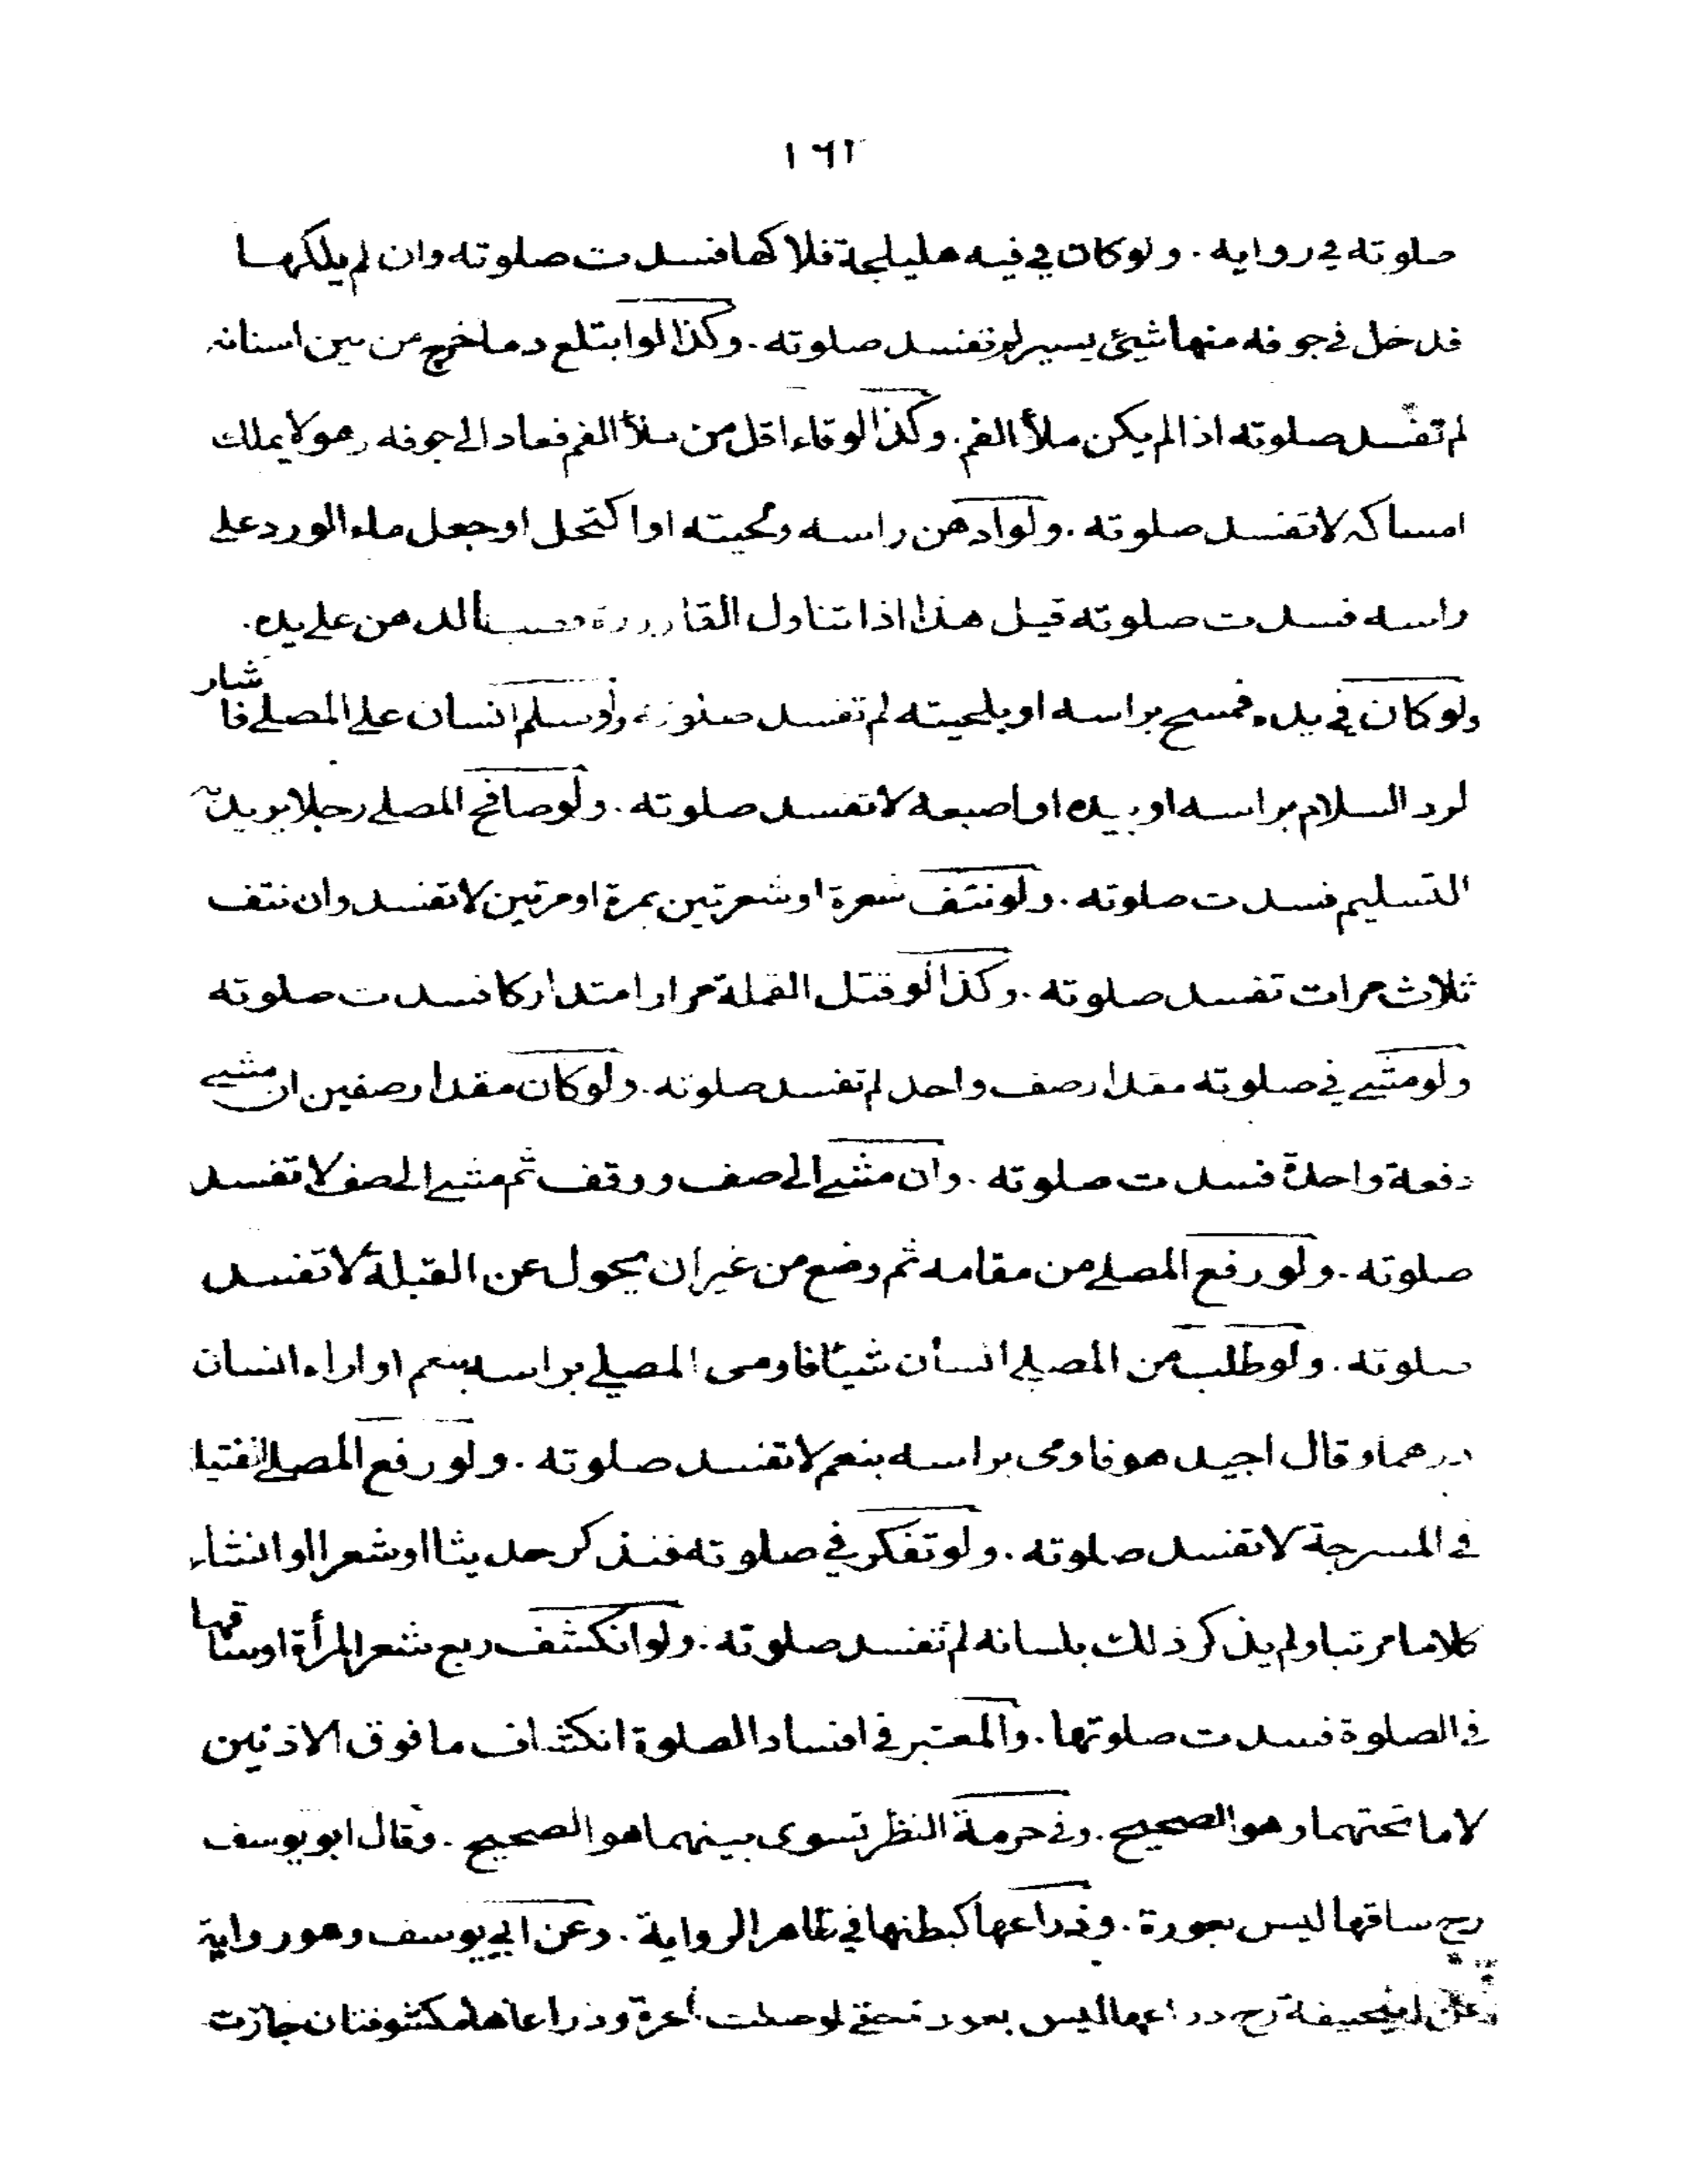 ١٦٢
صلوته في رواية . ولو كان في فيه هليلجة فلاكها فسدت صلوته وان لم يلكها
فدخل في جوفه منها شيئ يسير لم تفسد صلوته . وكذا لو ابتلع دما خرج من بين اسنانه
لم تفسد صلوته اذا لم يكن ملأ الفم . وكذا لو قاء اقل من ملأ الفم فعاد الى جوفه وهو لا يملك
امساكه لا تفسد صلوته . ولو ادهن راسه ولحيته او اكتحل او جعل ماء الورد على
راسه فسدت صلوته قيل هذا اذا تناول القارورة فصب الدهن على يده .
ولو كان في يده فمسح براسه او بلحيته لم تفسد صلوته ولو سلم انسان على المصلى فاشار
لرد السلام براسه او بيده او باصبعه لا تفسد صلوته . ولو صافح المصلى رجلا يريد به
التسليم فسدت صلوته . ولو نتف شعرة او شعرتين بمرة او مرتين لا تفسد وان نتف
ثلاث مرات تفسد صلوته . وكذا لو قتل القملة مرارا متداركا فسدت صلوته
ولو مشى في صلوته مقدار صف واحد لم تفسد صلوته . ولو كان مقدار صفين ان مشى
دفعة واحدة فسدت صلوته . وان مشى الى صف ووقف ثم مشى الى صف لا تفسد
صلوته . ولو رفع المصلى من مقامه ثم وضع من غير ان يحول عن القبلة لا تفسد
صلوته . ولو طلب من المصلى انسان شيئا فاومى المصلى براسه بنعم او اراه انسان
درهما وقال اجيد هو فاومى براسه بنعم لا تفسد صلوته . ولو رفع المصلى الفتيلة
في المسرجة لا تفسد صلوته . ولو تفكر في صلوته فتذكر حديثا او شعرا او انشاء
كلاما مرتبا ولم يذكر ذلك بلسانه لم تفسد صلوته . ولو انكشف ربع شعر المرأة او ساقها
في الصلوة فسدت صلوتها . والمعتبر في افساد الصلوة انكشاف ما فوق الاذنين
لا ما تحتهما وهو الصحيح . وفي حرمة النظر تسوى بينهما هو الصحيح . وقال ابو يوسف
رح ساقها ليس بعورة . وذراعها كبطنها في ظاهر الرواية . وعن ابي يوسف وهو رواية
عن ابي حنيفة رح ذراعها ليس بعورة حتى لو صلت حرة وذراعاها مكشوفتان جازت